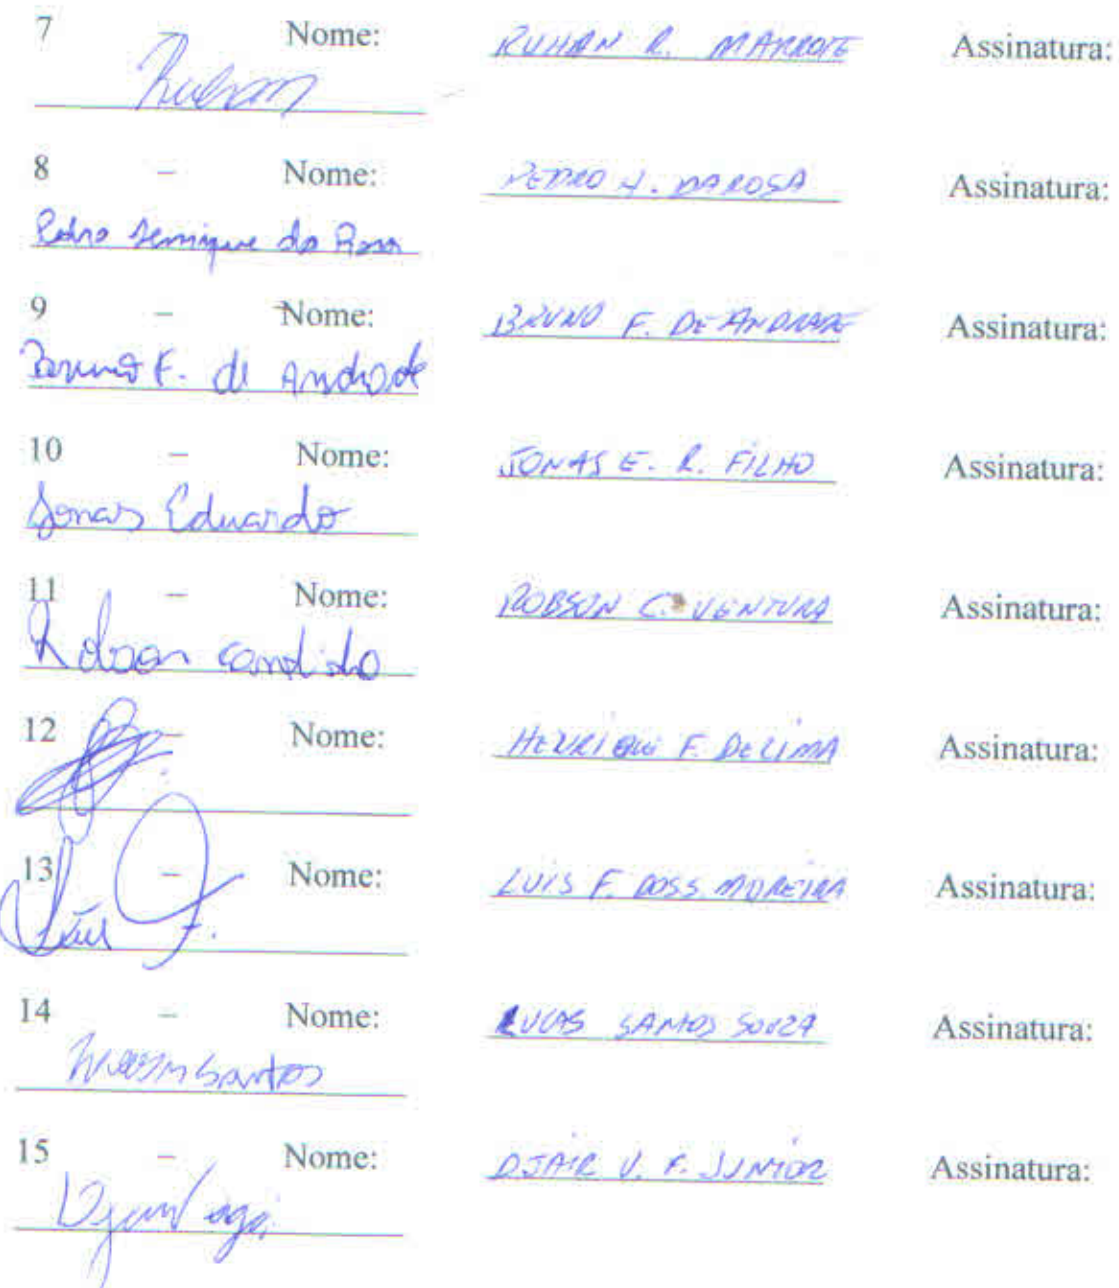 7 Nome: RUHAN R. MARROTE Assinatura:
Ruhan
8 – Nome: PEDRO H. DAROSA Assinatura:
Pedro Henrique da Rosa
9 – Nome: BRUNO F. DE ANDRADE Assinatura:
Bruno F. de Andrade
10 – Nome: JONAS E. R. FILHO Assinatura:
Jonas Eduardo
11 – Nome: ROBSON C. VENTURA Assinatura:
Robson candido
12 – Nome: HENRIQUE F. DE LIMA Assinatura:
13 – Nome: LUIS F. DOSS MOREIRA Assinatura:
Luis F.
14 – Nome: LUCAS SANTOS SOUZA Assinatura:
Santos
15 – Nome: DJAIR V. F. JUNIOR Assinatura: